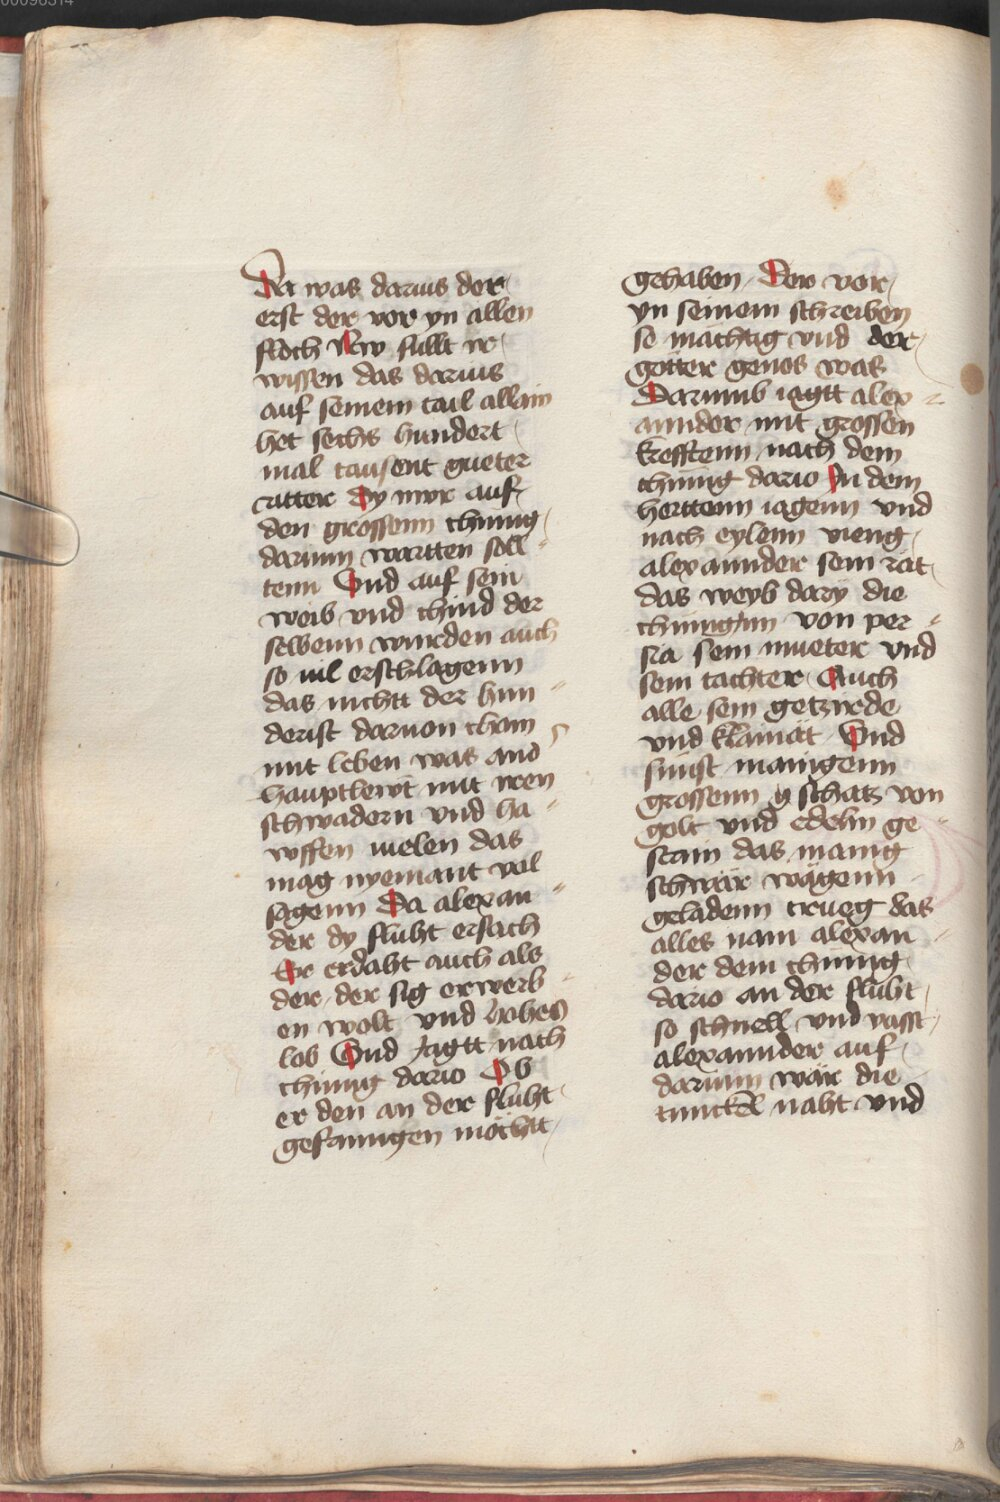 Da was darius der
erst der vor yn allen
floch Nw sullt ir
wissen das darius
auf seinem tail allain
het sechs hundert
mal tausent gueter
ritter Dy nwr auf
den grossenn chunig
darium wartten soll
tenn Vnd auf sein
weib vnd chind der
selbenn wurden auch
so uil erschlagenn
das nichtt der hun
derist daruon cham
mit leben was and
hauptlewt mit iren
schwadern vnd ha
wffen uielen das
mag nyemant vol
sagenn Da alexan
der dy fluht ersach
Er erdaht auch als
der der sig erwerb
en wolt vnd hohes
lob Vnd Jagtt nach
chunig dario Ob
er den an der fluht
gefanngen möchtt
gehaben Der vor
yn seinem schreiben
so mächtig vnd der
götter genos was
Darumb iagtt alex
annder mit grossen
krefftenn nach dem
chunig dario In dem
herttenn iagenn vnd
nach eylenn vieng
alexannder sein rät
das weyb dary die
chunigynn von per
sia sein mueter vnd
sein tachter Auch
alle sein getzirde
vnd klainät Vnd
sunst manigenn
grossenn schatz von
golt vnd edelm ge
stain das manig
schwär wägenn
geladenn trueg das
alles nam alexan
der dem chunig
dario an der fluht
so schnell vnd vasst
alexannder auf
darium wär die
tunckel naht vnd